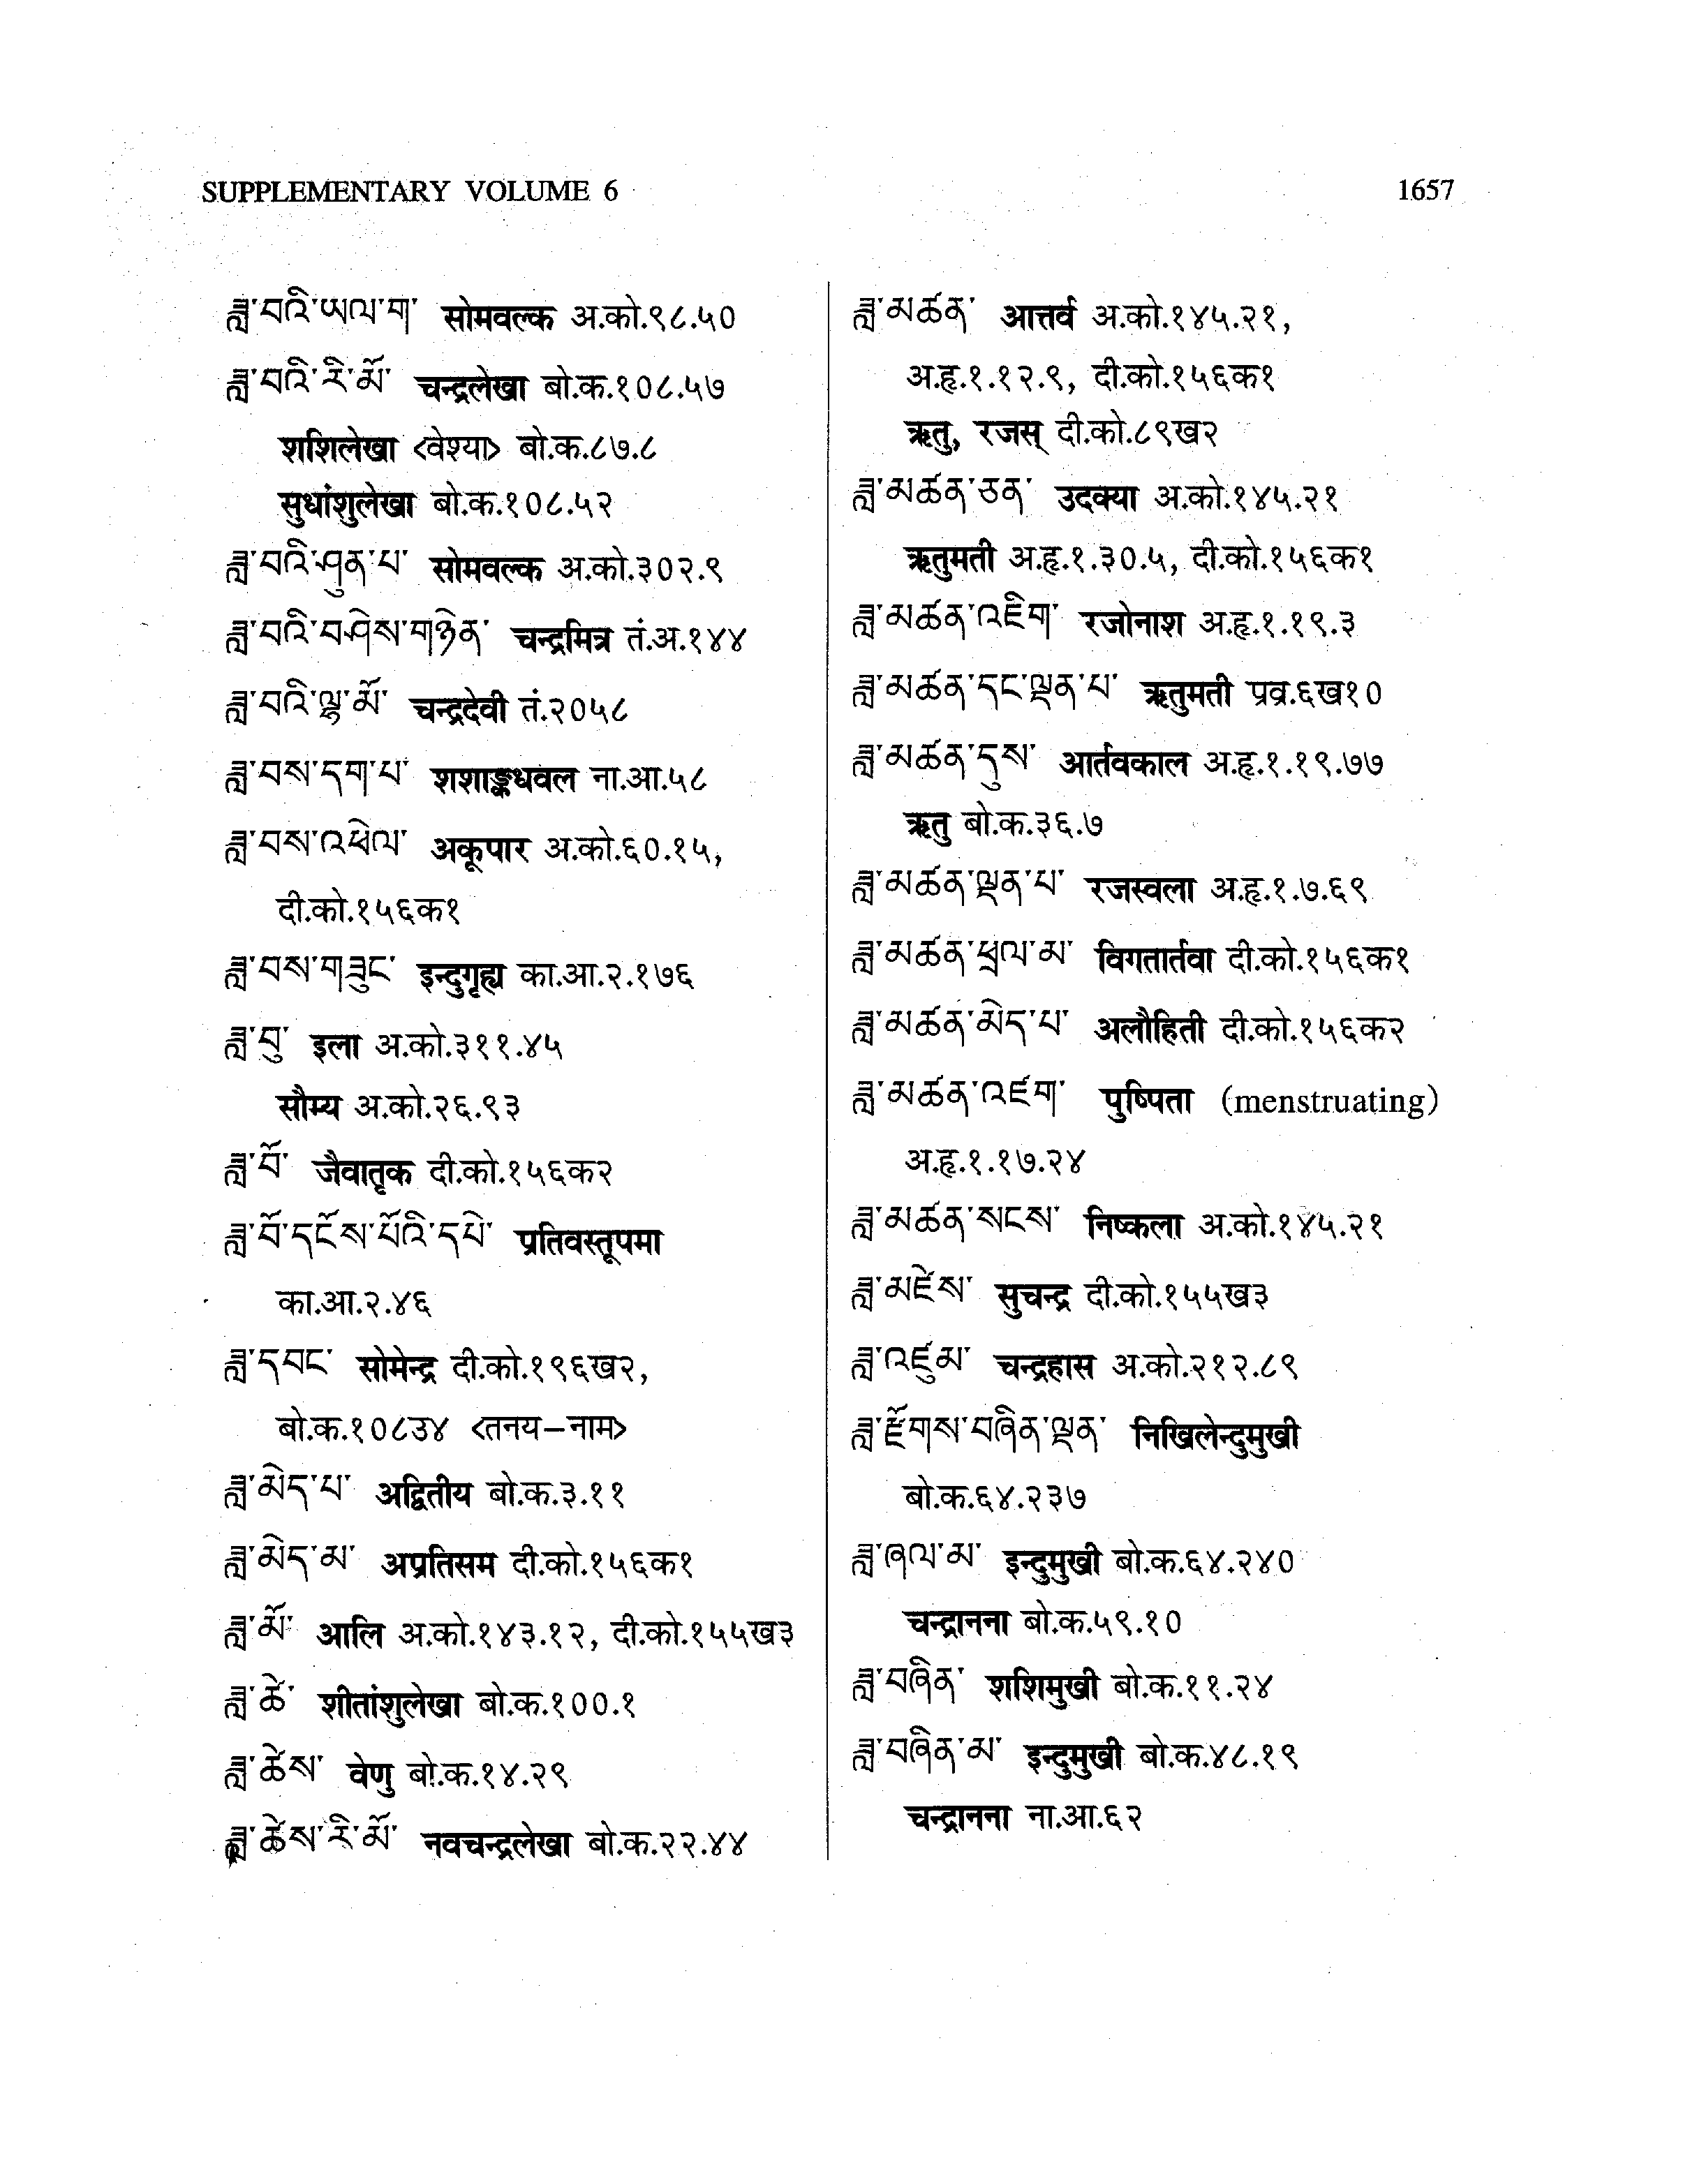 SUPPLEMENTARY VOLUME 6 1657
ཟླ་བའི་ཡལ་ག་ सोमवल्क अ.को.९८.५०
ཟླ་བའི་རི་མོ་ चन्द्रलेखा बो.क.१०८.५७
शशिलेखा <वेश्या> बो.क.८७.८
सुधांशुलेखा बो.क.१०८.५२
ཟླ་བའི་ཤུན་པ་ सोमवल्क अ.को.३०२.९
ཟླ་བའི་བཤེས་གཉེན་ चन्द्रमित्र तं.अ.१४४
ཟླ་བའི་ལྷ་མོ་ चन्द्रदेवी तं.२०५८
ཟླ་བས་དག་པ་ शशाङ्कधवल ना.आ.५८
ཟླ་བས་འཕེལ་ अकूपार अ.को.६०.१५,
दी.को.१५६क१
ཟླ་བས་གཟུང་ इन्दुगृह्य का.आ.२.१७६
ཟླ་བུ་ इला अ.को.३११.४५
सौम्य अ.को.२६.९३
ཟླ་བོ་ जैवातृक दी.को.१५६क२
ཟླ་བོ་དངོས་པོའི་དཔེ་ प्रतिवस्तूपमा
का.आ.२.४६
ཟླ་དབང་ सोमेन्द्र दी.को.१९६ख२,
बो.क.१०८३४ <तनय–नाम>
ཟླ་མེད་པ་ अद्वितीय बो.क.३.११
ཟླ་མེད་མ་ अप्रतिसम दी.को.१५६क१
ཟླ་མོ་ आलि अ.को.१४३.१२, दी.को.१५५ख३
ཟླ་ཚེ་ शीतांशुलेखा बो.क.१००.१
ཟླ་ཚེས་ वेणु बो.क.१४.२९
ཟླ་ཚེས་རི་མོ་ नवचन्द्रलेखा बो.क.२२.४४
ཟླ་མཚན་ आत्तर्व अ.को.१४५.२१,
अ.हृ.१.१२.९, दी.को.१५६क१
ऋतु, रजस् दी.को.८९ख२
ཟླ་མཚན་ཅན་ उदक्या अ.को.१४५.२१
ऋतुमती अ.हृ.१.३०.५, दी.को.१५६क१
ཟླ་མཚན་འཇིག་ रजोनाश अ.हृ.१.१९.३
ཟླ་མཚན་དང་ལྡན་པ་ ऋतुमती प्रव्र.६ख१०
ཟླ་མཚན་དུས་ आर्तवकाल अ.हृ.१.१९.७७
ऋतु बो.क.३६.७
ཟླ་མཚན་ལྡན་པ་ रजस्वला अ.हृ.१.७.६९
ཟླ་མཚན་ཕྲལ་མ་ विगतार्तवा दी.को.१५६क१
ཟླ་མཚན་མེད་པ་ अलौहिती दी.को.१५६क२
ཟླ་མཚན་འཛག་ पुष्पिता (menstruating)
अ.हृ.१.१७.२४
ཟླ་མཚན་སངས་ निष्कला अ.को.१४५.२१
ཟླ་མཛེས་ सुचन्द्र दी.को.१५५ख३
ཟླ་འཛུམ་ चन्द्रहास अ.को.२१२.८९
ཟླ་རྫོགས་བཞིན་ལྡན་ निखिलेन्दुमुखी
बो.क.६४.२३७
ཟླ་ཞལ་མ་ इन्दुमुखी बो.क.६४.२४०
चन्द्रानना बो.क.५९.१०
ཟླ་བཞིན་ शशिमुखी बो.क.११.२४
ཟླ་བཞིན་མ་ इन्दुमुखी बो.क.४८.१९
चन्द्रानना ना.आ.६२